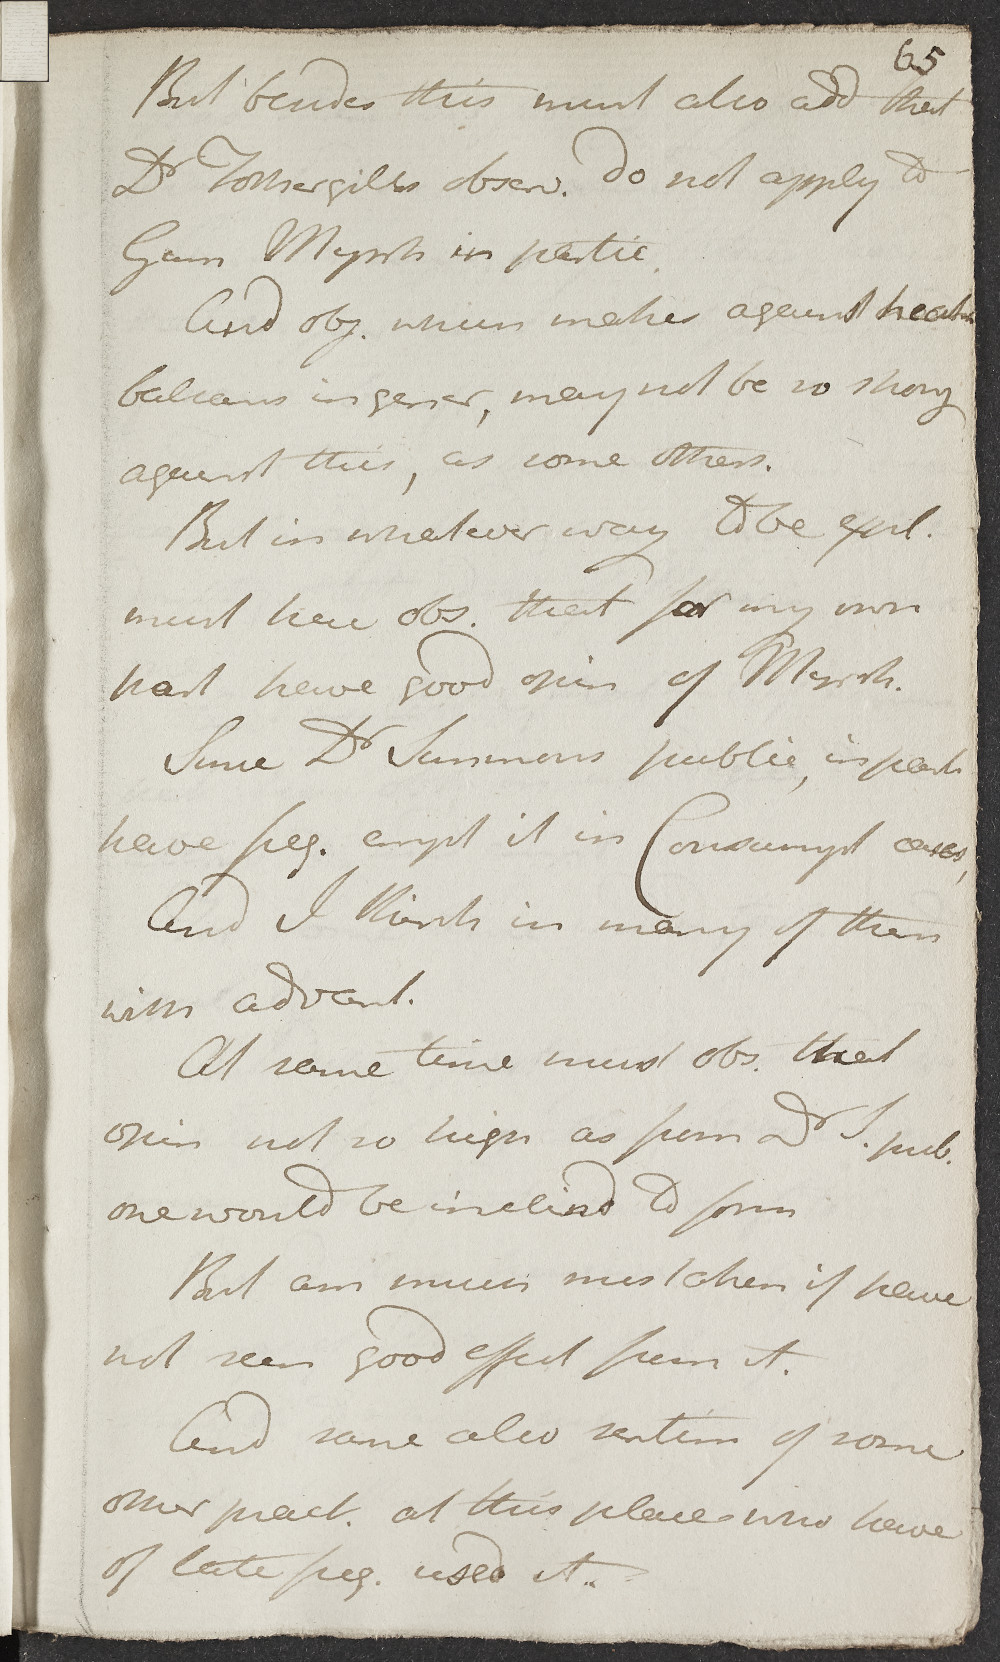 65
But besides this must also add that
Dr Fothergills observ. do not apply to
Gum Myrrh in partic.
And obj. which makes against heatn
balsams in gener, may not be so strong
against this, as some others.
But in whatever way to be expl.
must here obs. that for my own
part have good opin of Myrrh.
Since Dr Simmons public, in partic
have freq. empl it in Consumpt cases,
And I think in many of them
with advant.
At same time must obs. that
opin not so high as from Dr S. pub.
one would be inclind to form
But am much mistaken if have
not seen good effect from it.
And same also sentim of some
other pract. at this place who have
of late freq. used it..